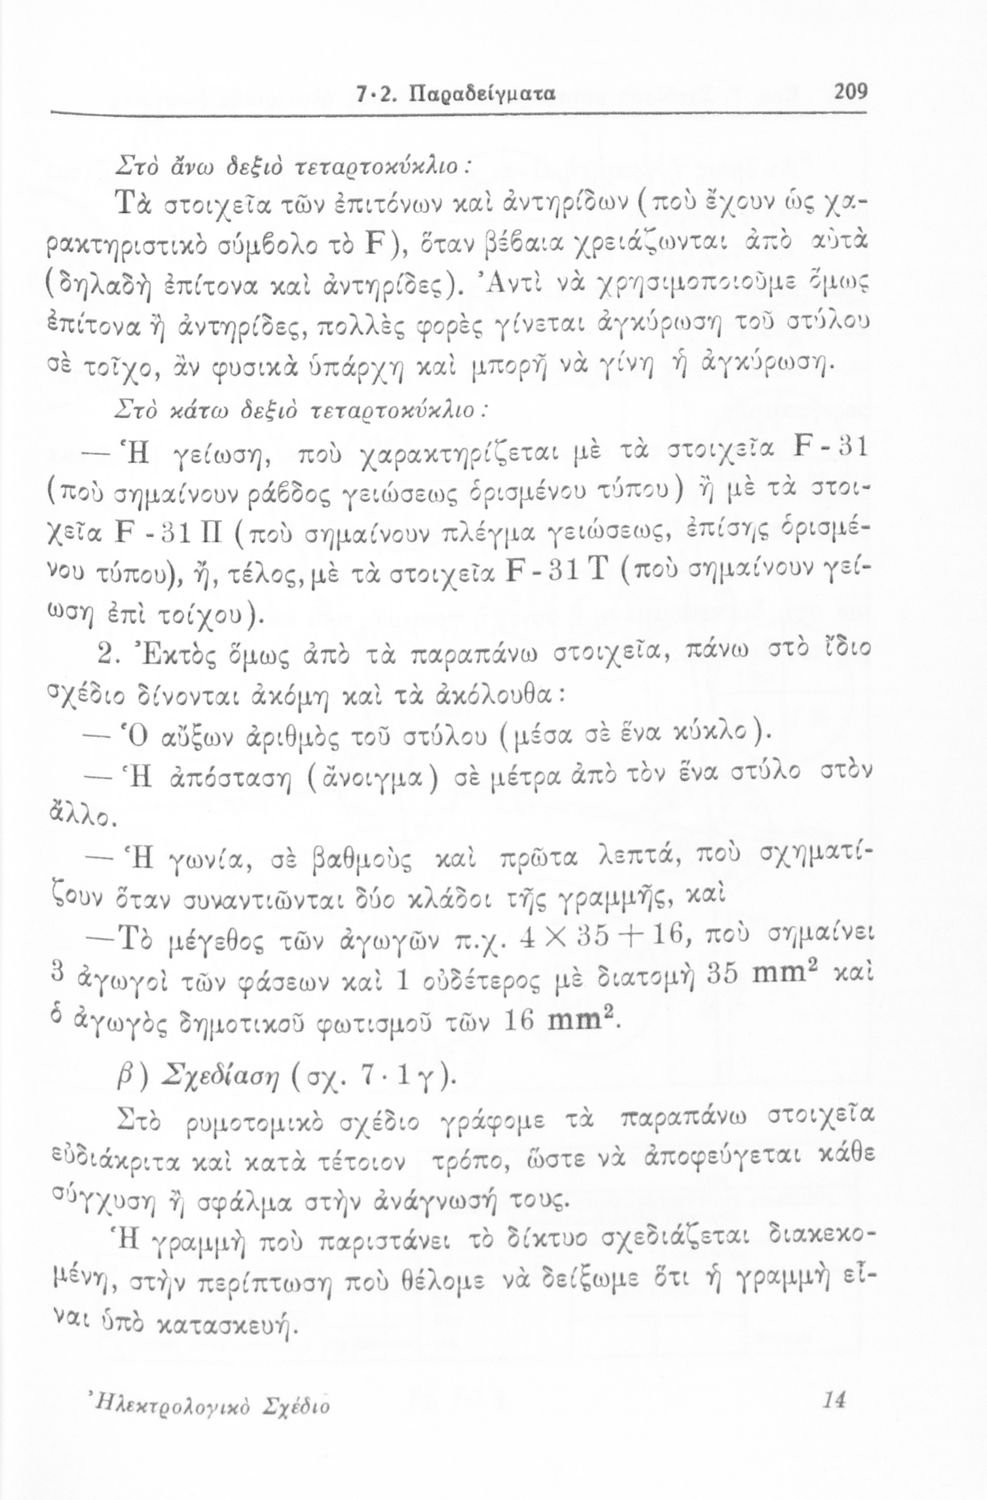 7·2. Παραδείγματα 209
Στὸ ἄνω δεξιὸ τεταρτοκύκλιο :
Τὰ στοιχεῖα τῶν ἐπιτόνων καὶ ἀντηρίδων (ποὺ ἔχουν ὡς χα-
ρακτηριστικὸ σύμβολο τὸ F), ὅταν βέβαια χρειάζωνται ἀπὸ αὐτὰ
(δηλαδὴ ἐπίτονα καὶ ἀντηρίδες). Ἀντὶ νὰ χρησιμοποιοῦμε ὅμως
ἐπίτονα ἢ ἀντηρίδες, πολλὲς φορὲς γίνεται ἀγκύρωση τοῦ στύλου
σὲ τοῖχο, ἂν φυσικὰ ὑπάρχη καὶ μπορῆ νὰ γίνη ἡ ἀγκύρωση.
Στὸ κάτω δεξιὸ τεταρτοκύκλιο :
— Ἡ γείωση, ποὺ χαρακτηρίζεται μὲ τὰ στοιχεῖα F - 31
(ποὺ σημαίνουν ράβδος γειώσεως ὁρισμένου τύπου) ἢ μὲ τὰ στοι-
χεῖα F - 31 Π (ποὺ σημαίνουν πλέγμα γειώσεως, ἐπίσης ὁρισμέ-
νου τύπου), ἤ, τέλος, μὲ τὰ στοιχεῖα F - 31 Τ (ποὺ σημαίνουν γεί-
ωση ἐπὶ τοίχου).
2. Ἐκτὸς ὅμως ἀπὸ τὰ παραπάνω στοιχεῖα, πάνω στὸ ἴδιο
σχέδιο δίνονται ἀκόμη καὶ τὰ ἀκόλουθα :
— Ὁ αὔξων ἀριθμὸς τοῦ στύλου (μέσα σὲ ἕνα κύκλο).
— Ἡ ἀπόσταση (ἄνοιγμα) σὲ μέτρα ἀπὸ τὸν ἕνα στύλο στὸν
ἄλλο.
— Ἡ γωνία, σὲ βαθμοὺς καὶ πρῶτα λεπτά, ποὺ σχηματί-
ζουν ὅταν συναντιῶνται δύο κλάδοι τῆς γραμμῆς, καὶ
— Τὸ μέγεθος τῶν ἀγωγῶν π.χ. 4 × 35 + 16, ποὺ σημαίνει
3 ἀγωγοὶ τῶν φάσεων καὶ 1 οὐδέτερος μὲ διατομὴ 35 mm² καὶ
ὁ ἀγωγὸς δημοτικοῦ φωτισμοῦ τῶν 16 mm².
β) Σχεδίαση (σχ. 7·1 γ).
Στὸ ρυμοτομικὸ σχέδιο γράφομε τὰ παραπάνω στοιχεῖα
εὐδιάκριτα καὶ κατὰ τέτοιον τρόπο, ὥστε νὰ ἀποφεύγεται κάθε
σύγχυση ἢ σφάλμα στὴν ἀνάγνωσή τους.
Ἡ γραμμὴ ποὺ παριστάνει τὸ δίκτυο σχεδιάζεται διακεκο-
μένη, στὴν περίπτωση ποὺ θέλομε νὰ δείξωμε ὅτι ἡ γραμμὴ εἶ-
ναι ὑπὸ κατασκευή.
Ἠλεκτρολογικὸ Σχέδιο 14